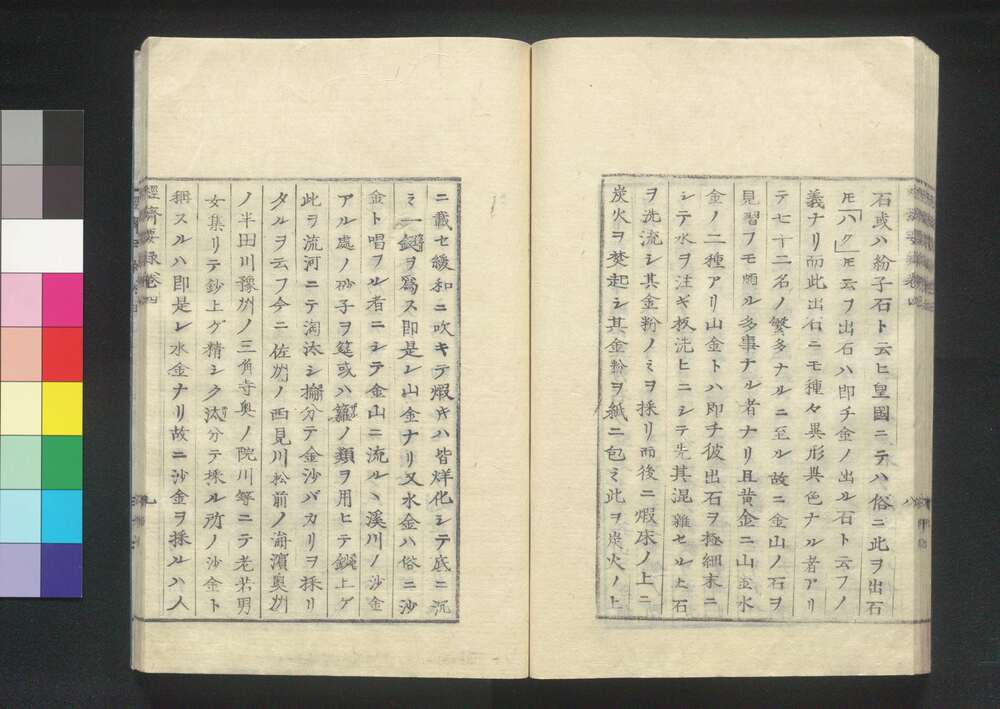 石或ハ紛子石ト云ヒ皇國ニテハ俗ニ此ヲ出石
𪜈「ハク」𪜈云フ出石ハ即チ金ノ出ル石ト云フノ
義ナリ而此出石ニモ種々異形異色ナル者アリ
テ七十二名ノ繁多ナルニ至ル故ニ金山ノ石ヲ
見習フモ頗ル多事ナル者ナリ且黄金ニ山金水
金ノ二種アリ山金トハ即チ彼出石ヲ極細末ニ
シテ水ヲ注ギ板洗ヒニシテ先其混雜セル土石
ヲ洗流シ其金粉ノミヲ採リ而後ニ煆床ノ上ニ
炭火ヲ焚起シ其金粉ヲ紙ニ包ミ此ヲ炭火ノ上
八
ニ載セ緩和ニ吹キテ煆キハ皆烊化シテ底ニ沉
ミ一ヲ爲ス即是レ山金ナリ又水金ハ俗ニ沙
金ト唱フル者ニシテ金山ニ流ルヽ溪川ノ沙金
アル處ノ砂子ヲ筵或ハ籮ノ類ヲ用ヒテ上ゲ
此ヲ流河ニテ淘汰シ分テ金沙バカリヲ採リ
タルヲ云フ今ニ佐州ノ西見川松前ノ海濱奧州
ノ半田川豫州ノ三角寺奥ノ院川等ニテ老若男
女集リテ鈔上ゲ精シク汰分テ採ル所ノ沙金ト
稱スルハ即是レ水金ナリ故ニ沙金ヲ採ルハ人
經濟要録卷四
九